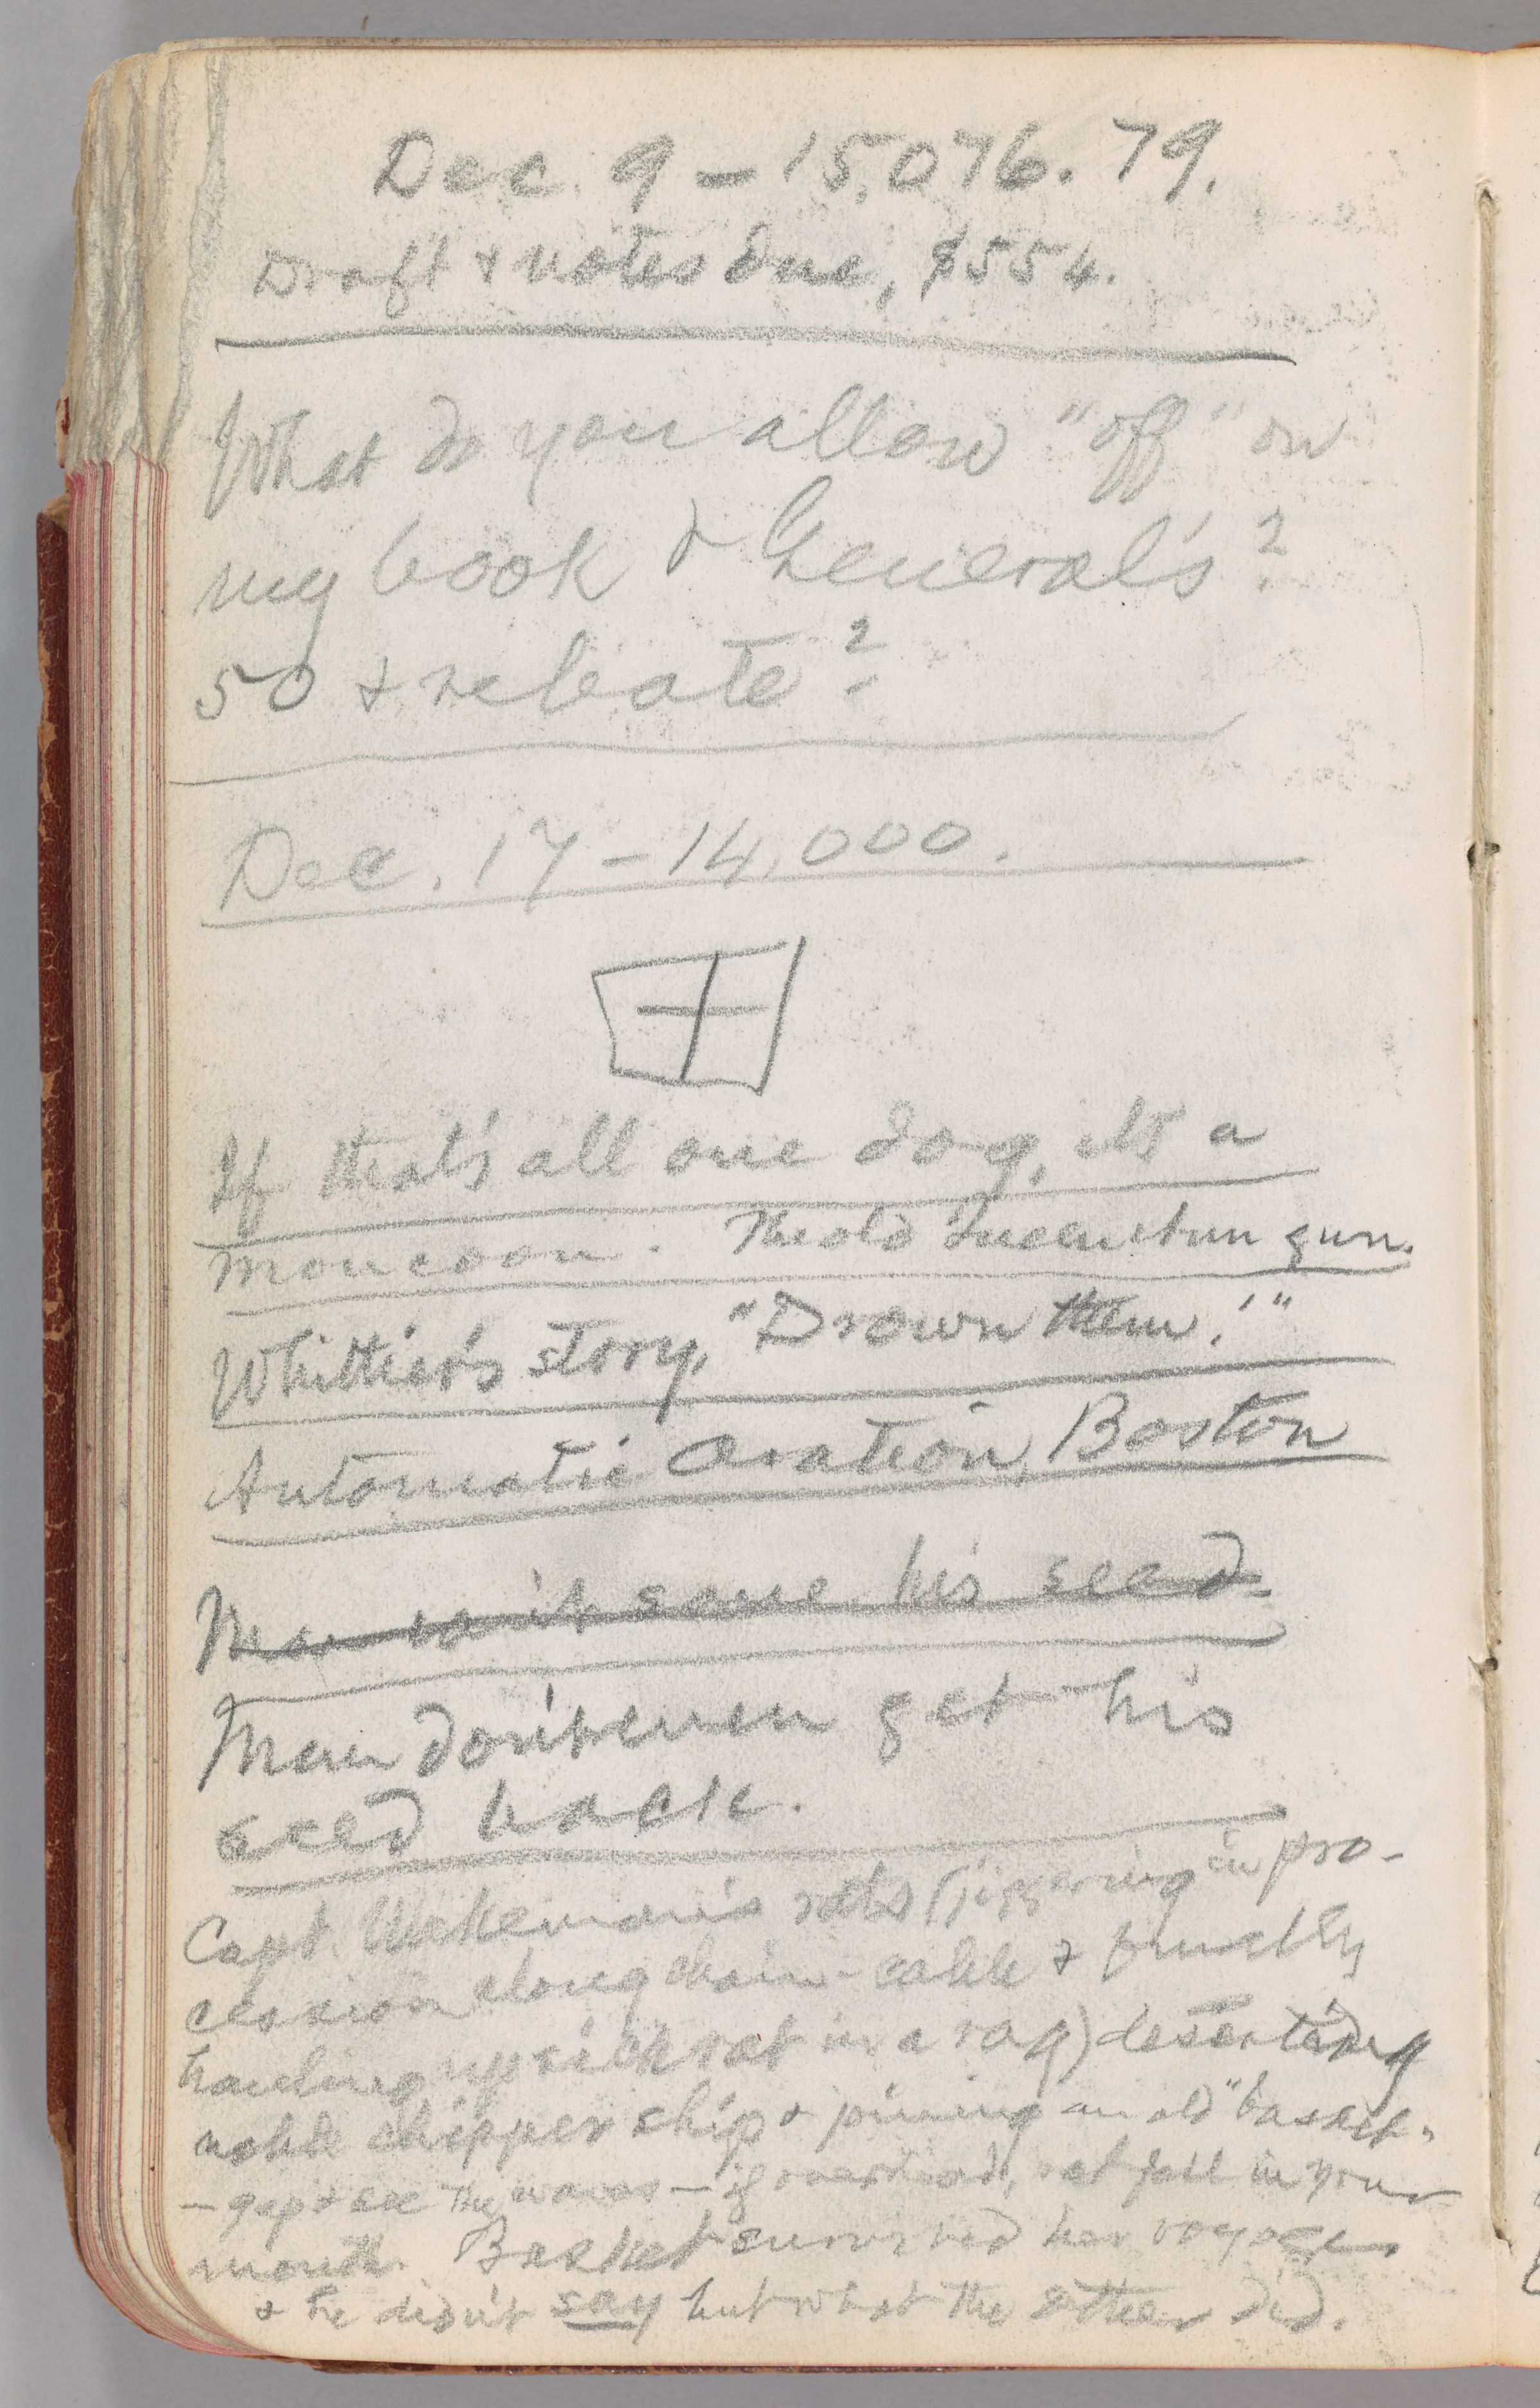 Dec. 9 — 15,076.79.
Draft & notes due, $554.
What do you allow "off" on
my book & General's?
50 & rebate?
Dec. 17 — 14,000.
If that's all one dog, it's a
moncoon. The old gun.
Whittier's story, "Drown them!"
Automatic Oration, Boston
Man won't save his seed
Man don't even get his
seed back.
Capt. Wakeman's rats (jiggering in pro-
cession along chain-cable & finally
hauling up sick rat in a rag) deserting
noble clipper ship & joining an old "basket"
— gap & see the waves — if overhead, rat fall in your
mouth. Basket survived her voyage
& he didn't say but what the other did.